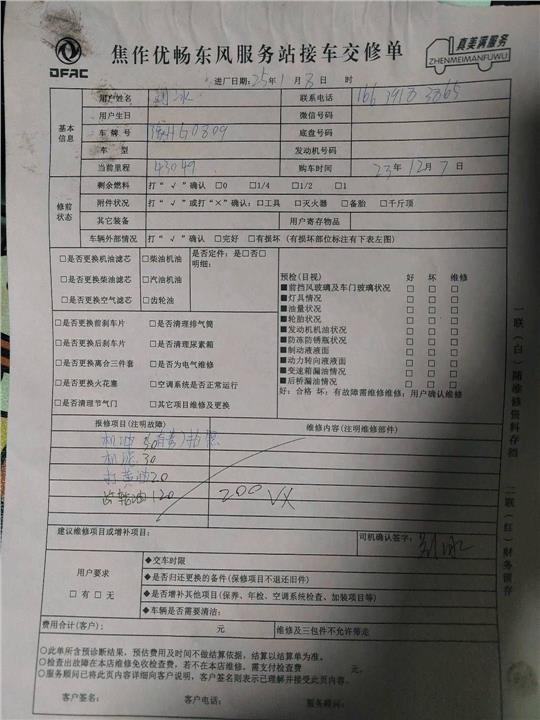 DFAC
焦作优畅东风服务站接车交修单
真美满服务
ZHENMEIMANFUWU
进厂日期：25年1月8日 时
基本信息
用户姓名 刘冰 联系电话
用户生日 微信号码
车牌号 G0809 底盘号码
车型 发动机号码
当前里程 43049 购车时间 23年12月7日
修前状态
剩余燃料 打“√”确认 □0 □1/4 □1/2 □1
附件状况 打“√”或打“×”确认：□工具 □灭火器 □备胎 □千斤顶
其它装备 用户寄存物品
车辆外部情况 打“√”确认 □完好 □有损坏（有损坏部位标注有下表左图）
□是否更换机油滤芯 □柴油机油 是否定件：是□否□
明细：
□是否更换柴油滤芯 □汽油机油
□是否更换空气滤芯 □齿轮油
□是否更换前刹车片 □是否清理排气筒
□是否更换后刹车片 □是否清理尿素箱
□是否更换离合三件套 □是否为电气维修
□是否更换火花塞 □空调系统是否正常运行
□是否清理节气门 □其它项目维修及更换
预检（目视） 好 坏 维修
■前挡风玻璃及车门玻璃状况 □ □ □
■灯具情况 □ □ □
■油量状况 □ □ □
■轮胎状况 □ □ □
■发动机机油状况 □ □ □
■防冻防锈瓶状况 □ □ □
■制动液液面 □ □ □
■动力转向液液面 □ □ □
■变速箱漏油情况 □ □ □
■后桥漏油情况 □ □ □
好：合格 坏：有故障需维修维修：用户确认维修
报修项目（注明故障） 维修内容（注明维修部件）
机油 50
机滤 30
打黄油20
齿轮油120 200 VX
建议维修项目或增补项目： 司机确认签字：刘冰
用户要求
□有 □无
◆交车时限
◆是否归还更换的备件（保修项目不退还旧件）
◆是否增补其他项目（保养、年检、空调系统检查、加装项目等）
◆车辆是否需要清洁：
费用合计（客户）： 元 维修及三包件不允许带走
○此单所含预诊断结果，预估费用及时间不做结算依据，结算以结算单为准。
○检查出故障在本店维修免收检查费，若不在本店维修，需支付检查费 元。
○服务顾问已将此页内容详细向客户说明，客户签名则表示已理解并接受此页内容。
客户签名： 客户电话： 服务顾问：
一联（白）随维修资料存档
二联（红）财务留存